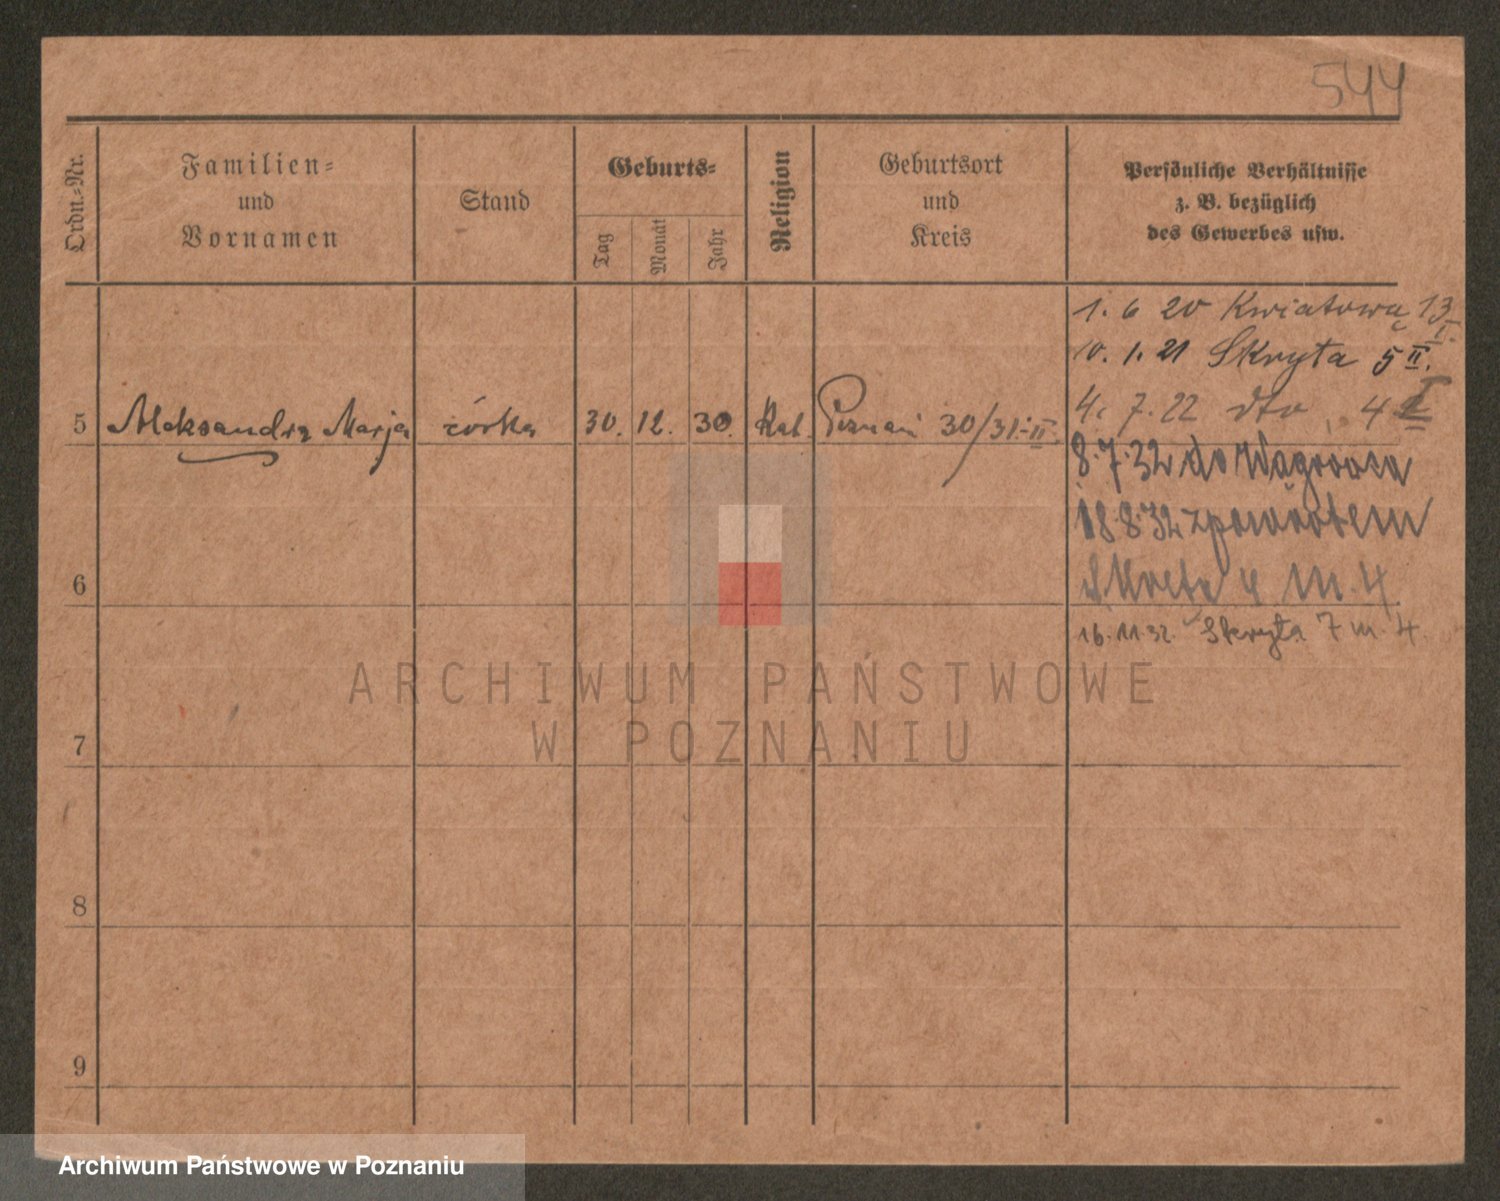 544
Ordn.-Nr.
Familien-
und
Vornamen
Stand
Geburts-
Tag
Monat
Jahr
Religion
Geburtsort
und
Kreis
Persönliche Verhältnisse
z. B. bezüglich
des Gewerbes usw.
1. 6 20 Kwiatowa 13
10. 1. 21 Skryta 5 II.
4. 7. 22 dto 4
5 Aleksandra Marja córka 30. 12. 30. Kat. Poznań 30/31.-II.
8.7.32 do Wągrowca
18.8.32 zpowrotem
6
Skryta 4 m. 4
16.11.32. Skryta 7 m. 4.
ARCHIWUM PAŃSTWOWE
W POZNANIU
7
8
9
Archiwum Państwowe w Poznaniu